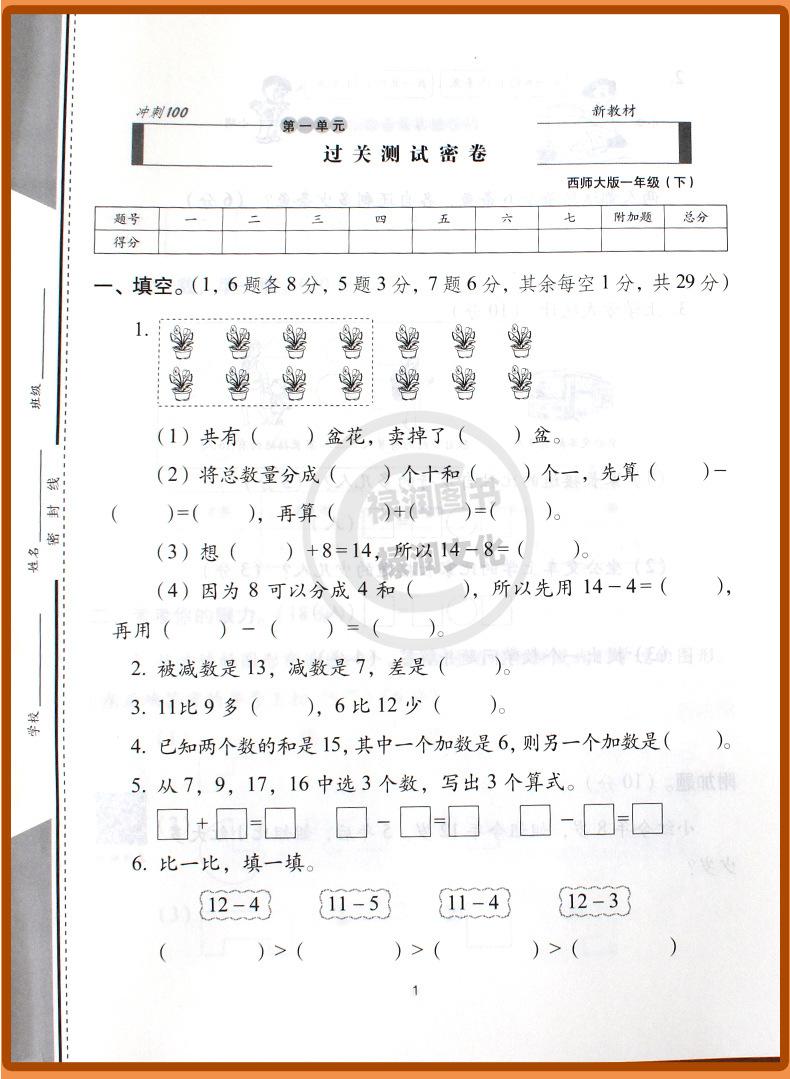 冲刺100
新教材
第一单元
过关测试密卷
西师大版一年级（下）
题号 一 二 三 四 五 六 七 附加题 总分
得分
一、填空。（1，6题各8分，5题3分，7题6分，其余每空1分，共29分）
1.
（1）共有（ ）盆花，卖掉了（ ）盆。
（2）将总数量分成（ ）个十和（ ）个一，先算（ ）−
（ ）=（ ），再算（ ）+（ ）=（ ）。
（3）想（ ）+8=14，所以14−8=（ ）。
（4）因为8可以分成4和（ ），所以先用14−4=（ ），
再用（ ）−（ ）=（ ）。
2. 被减数是13，减数是7，差是（ ）。
3. 11比9多（ ），6比12少（ ）。
4. 已知两个数的和是15，其中一个加数是6，则另一个加数是（ ）。
5. 从7，9，17，16中选3个数，写出3个算式。
□+□=□ □−□=□ □−□=□
6. 比一比，填一填。
12−4 11−5 11−4 12−3
（ ）>（ ）>（ ）>（ ）
1
班级
姓名
学校
密封线
禄润图书
禄润文化